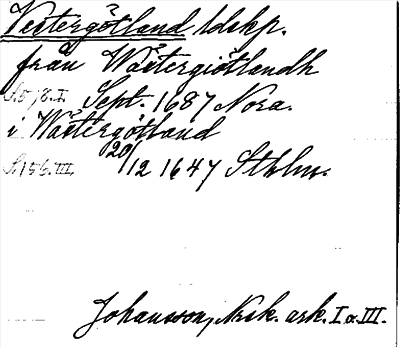 Vestergötland ldskp.
från Wästergiötlandh
S. 578. I. Sept. 1687 Nora.
i Wästergötland
S. 156. III. 20/12 1647 Sthlm.
Johansson, Nask. ark. I o. III.